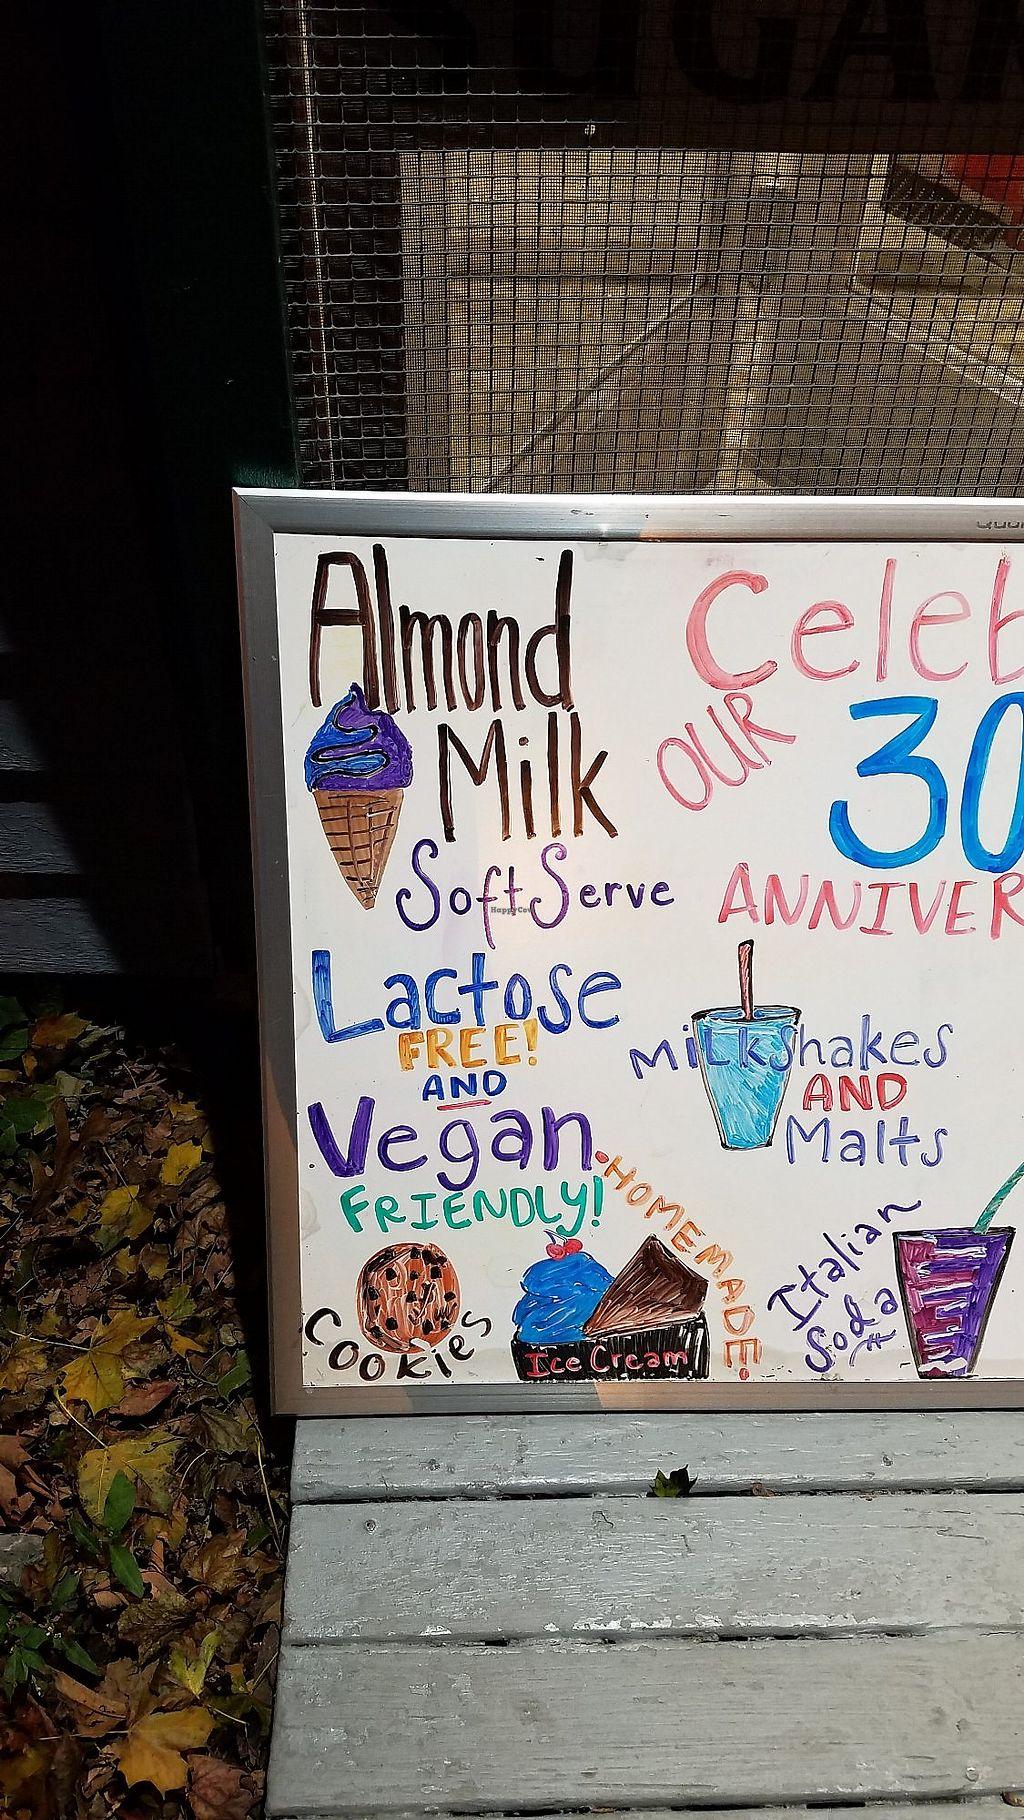 SUGAR
Almond
Milk
Soft Serve
HappyCow
Lactose
FREE!
AND
Vegan
FRIENDLY!
Cookies
HOMEMADE!
Ice Cream
Celeb
OUR
30
ANNIVER
Milkshakes
AND
Malts
Italian
Soda